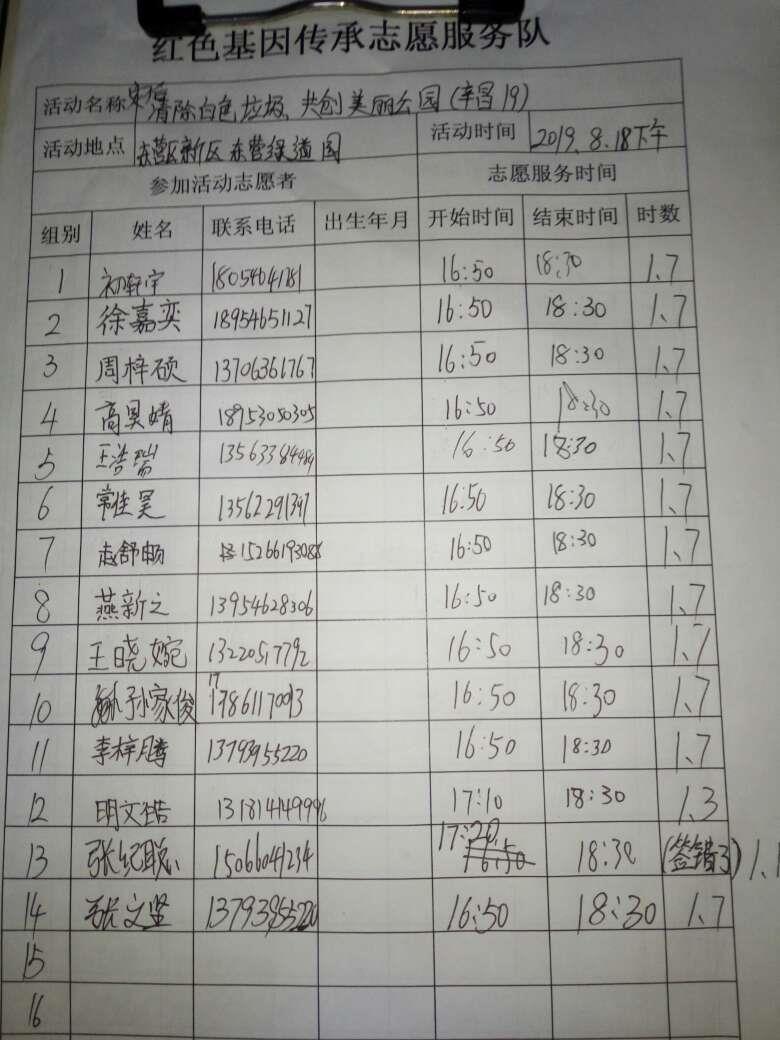 红色基因传承志愿服务队
活动名称 清除白色垃圾、共创美丽公园(辛昌19)
活动地点 东营区新区东营绿道园 活动时间 2019.8.18下午
参加活动志愿者 志愿服务时间
组别 姓名 联系电话 出生年月 开始时间 结束时间 时数
1 初轩宇 18:30 16:50 1.7
2 徐嘉奕 18954651127 16:50 18:30 1.7
3 周梓硕 13706361767 16:50 18:30 1.7
4 高昊婧 18953050305 16:50 18:30 1.7
5 王浩瑞 16:50 18:30 1.7
6 常佳昊 16:50 18:30 1.7
7 赵舒畅 16:50 18:30 1.7
8 燕新之 13954628306 16:50 18:30 1.7
9 王晓婉 13220517792 16:50 18:30 1.7
10 孙家俊 17861170013 16:50 18:30 1.7
11 李梓腾 13793955220 16:50 18:30 1.7
12 明文皓 17:10 18:30 1.3
13 张纪聪 15066041234 17:20 16:50 18:30 (签错了) 1.1
14 张文坚 13793955220 16:50 18:30 1.7
15
16